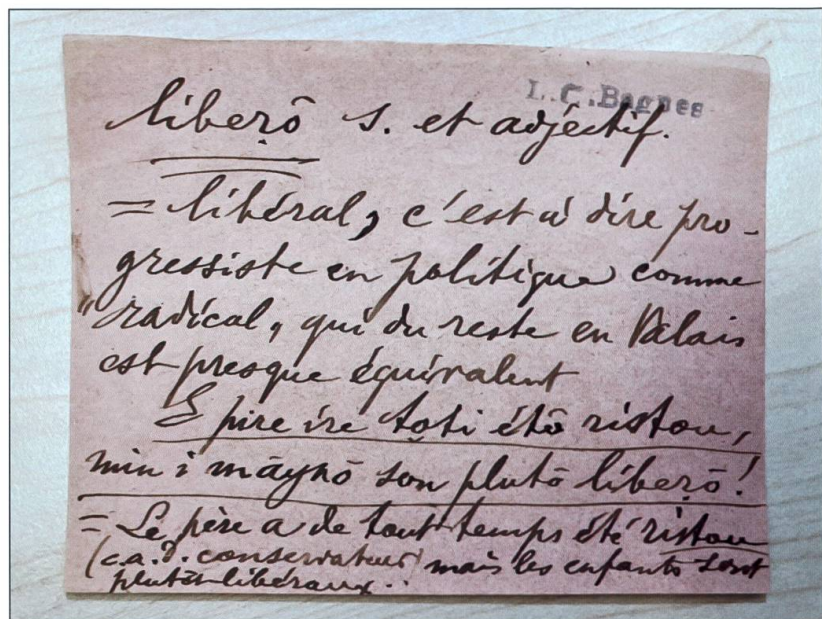 L. C. Bagnes
liberō s. et adjectif.
= libéral, c'est à dire pro-
gressiste en politique comme
"radical, qui du reste en Valais
est presque équivalent
E pire ire toti étō ristou,
min i māynō son plutō liberō!
= Le père a de tout temps été ristou
(c.a.d. conservateur) mais les enfants sont
plutôt libéraux.